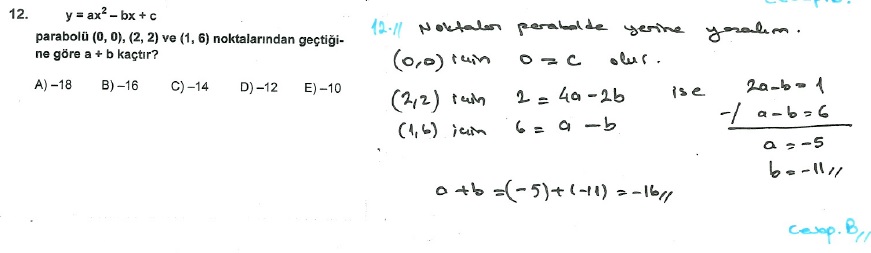 12. y = ax² – bx + c
parabolü (0, 0), (2, 2) ve (1, 6) noktalarından geçtiği-
ne göre a + b kaçtır?
A) –18 B) –16 C) –14 D) –12 E) –10
12.// Noktaları parabolde yerine yazalım.
(0,0) için 0 = c olur.
(2,2) için 2 = 4a – 2b ise 2a – b = 1
(1,6) için 6 = a – b –/ a – b = 6
a = –5
b = –11//
a + b = (–5) + (–11) = –16//
Cevap. B//